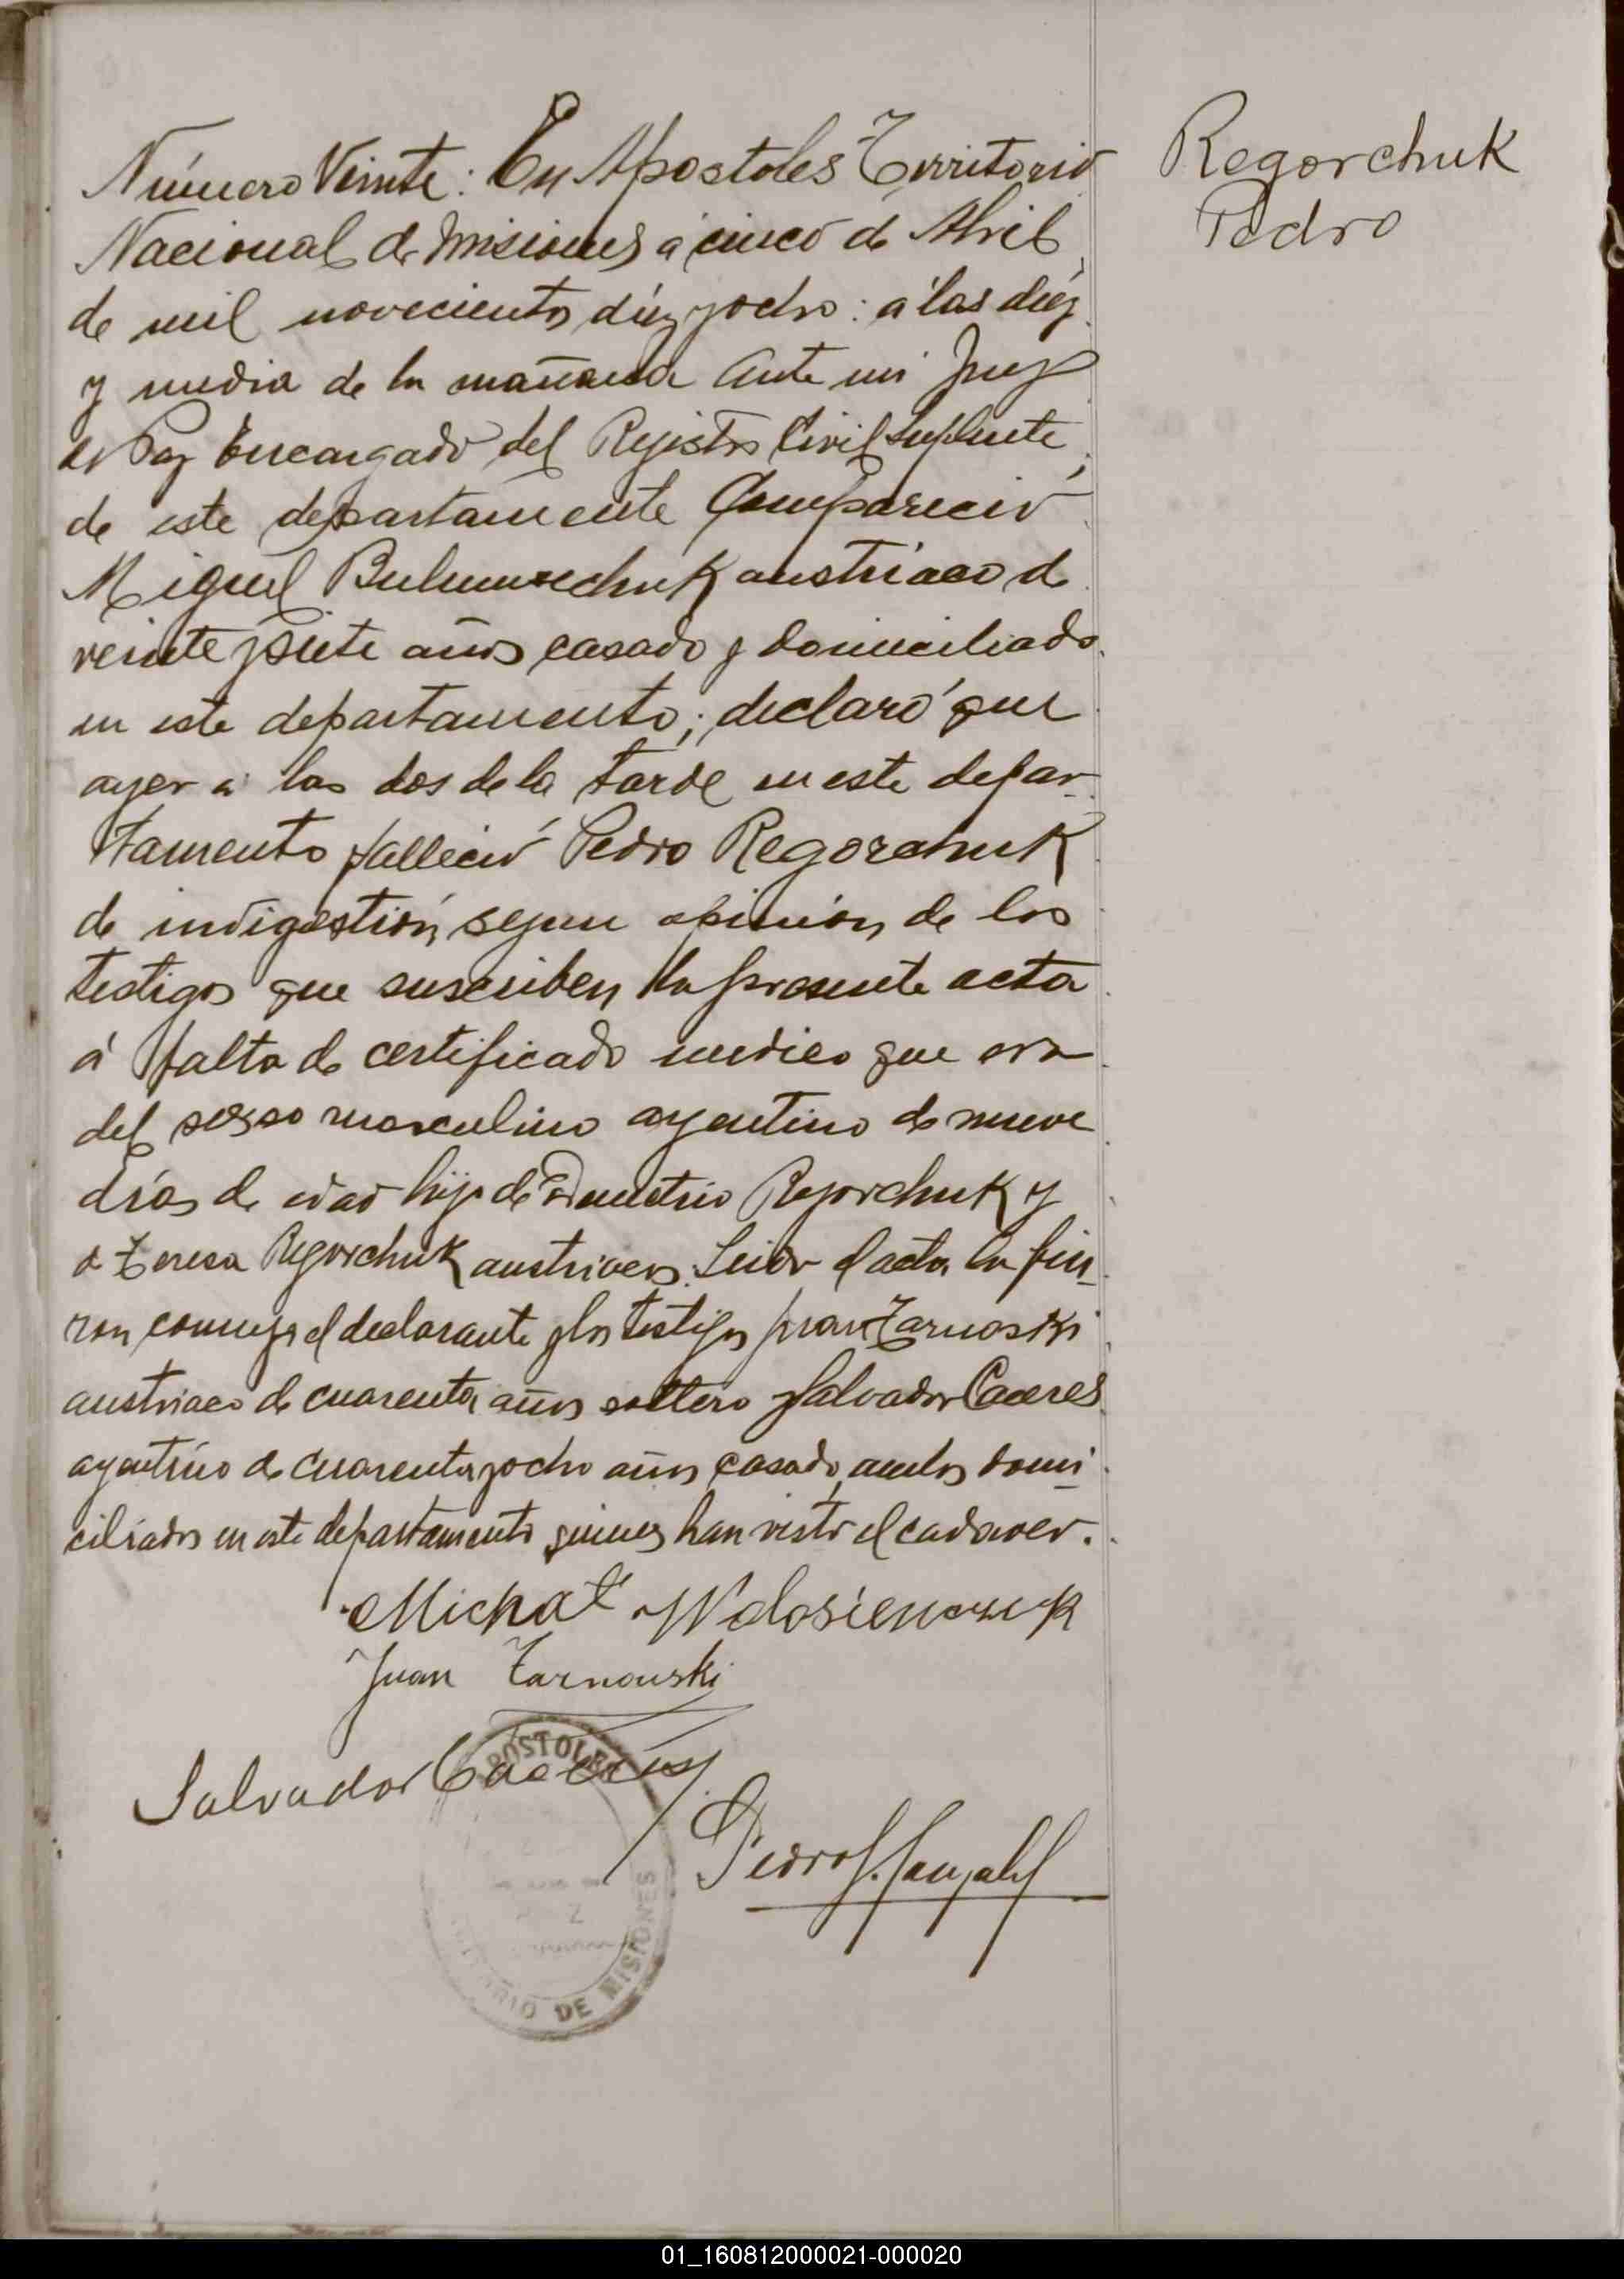 Número Veinte: En Apostoles Territorio
Nacional de Misiones a cinco de Abril
de mil novecientos diez y ocho: a las diez
y media de la mañana ante mi Juez
de Paz Encargado del Registro Civil Suplente
de este departamente Compareció
Miguel austriaco de
veinte y siete años casado y domiciliado
en este departamento; declaró que
ayer a las dos de la tarde en este depar-
tamento falleció Pedro Regorchuk
de indigestión, segun opinión de los
testigos que suscriben la presente acta
á falta de certificado medico que era
del sexso masculino argentino de nueve
días de edad hijo de Demetrio Regorchuk y
de Teresa Regorchuk austriacos. Leida el acta la fir-
ron conmigo el declarante y los testigos Juan Tarnoski
austriaco de cuarenta años soltero y Salvador Caceres
argentino de cuarenta y ocho años casado, ambos domi-
ciliados en este departamento quienes han visto el cadaver.
Michał Wolosienczuk
Juan Tarnouski
Salvador Caceres
Pedro
APOSTOLES
TERRITORIO DE MISIONES
Regorchuk
Pedro
01_160812000021-000020